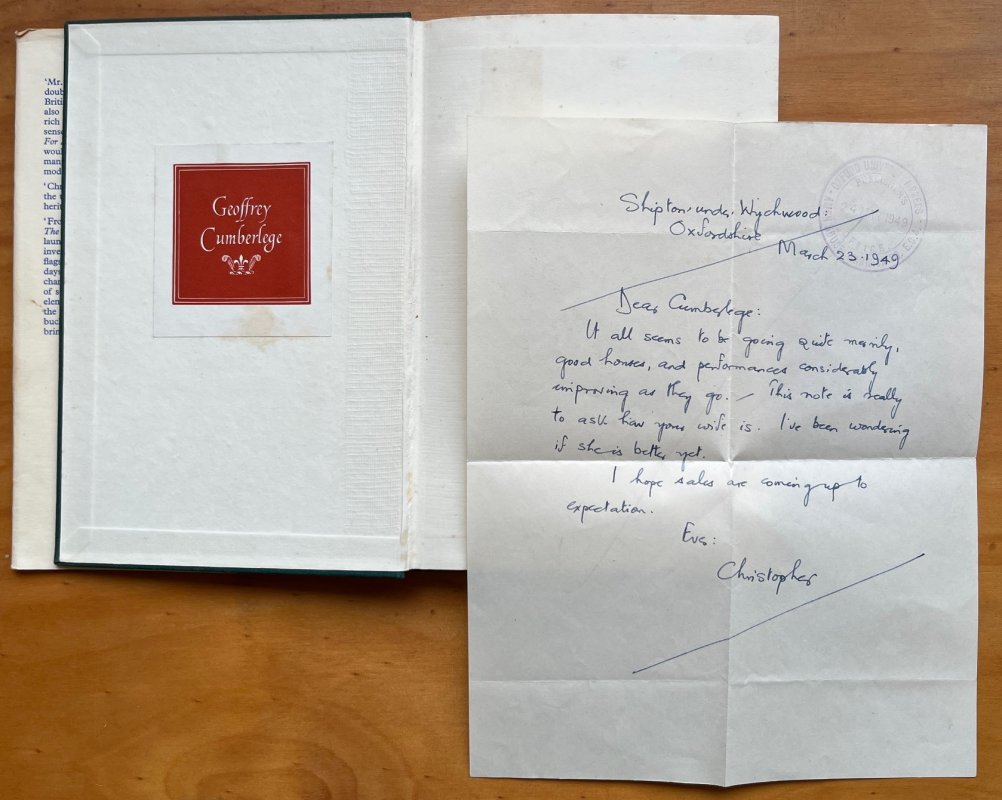 'Mr.
doub
Briti
also
rich
sense
For
woul
man
mod
'Chr
the
herit
'Fro
The
laun
inve
flag
days
char
of s
elem
the
buck
brin
Geoffrey
Cumberlege
OXFORD UNIV
1949
E.C.4
Shipton-under-Wychwood:
Oxfordshire
March 23.1949
Dear Cumberlege:
It all seems to be going quite merrily,
good houses, and performances considerably
improving as they go. – This note is really
to ask how your wife is. I've been wondering
if she is better yet.
I hope sales are coming up to
expectation.
Ever:
Christopher